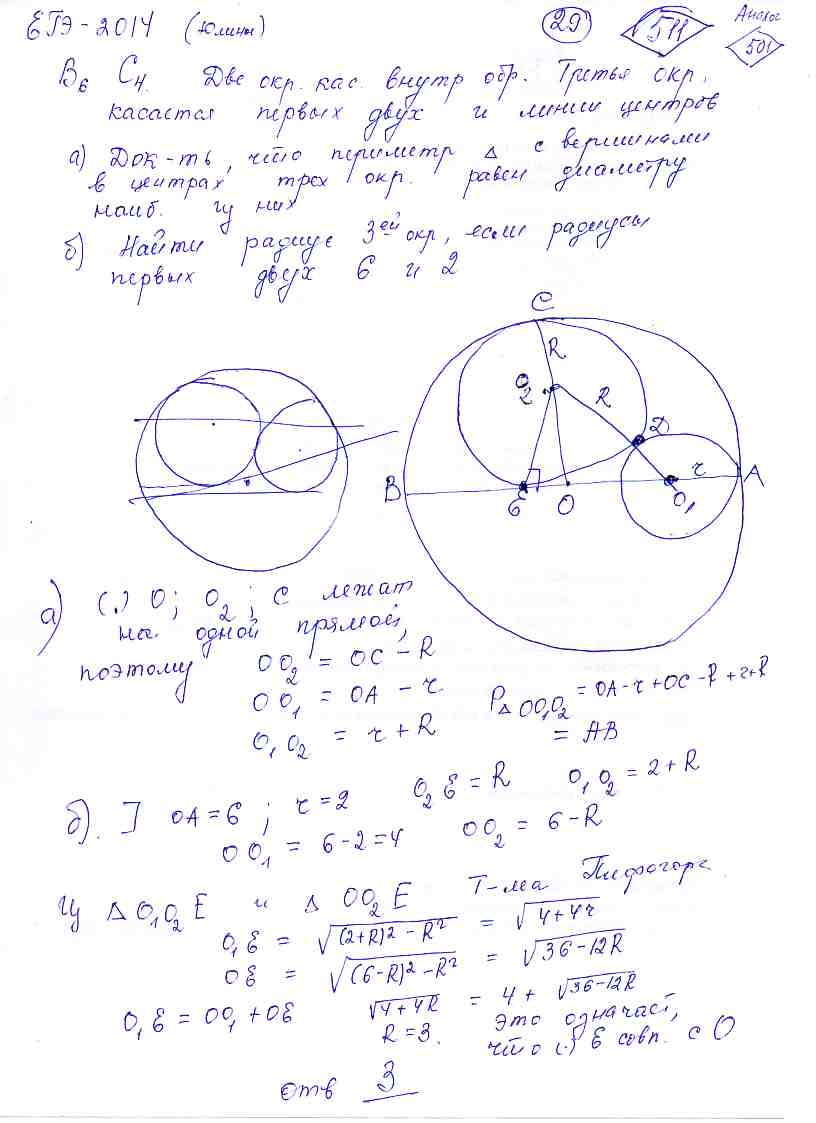 ЕГЭ-2014 (Юлины) 29 511 Аналог 501
В6 С4. Две окр. кас. внутр обр. Третья окр.
касается первых двух и линии центров
а) Док-ть, что периметр Δ с вершинами
в центрах трех окр. равен диаметру
наиб. из них
б) Найти радиус 3ей окр, если радиусы
первых двух 6 и 2
C
R
O2 R
D
r
B E O O1 A
а) (.) O; O2; C лежат
на одной прямой,
поэтому OO2 = OC - R
OO1 = OA - r
O1O2 = r + R
PΔOO1O2 = OA-r+OC-R+r+R
= AB
б). ] OA=6; r=2 O2E=R O1O2=2+R
OO1 = 6-2=4 OO2 = 6-R
Из ΔO1O2E и ΔOO2E Т-ма Пифагора
O1E = √(2+R)²-R² = √4+4r
OE = √(6-R)²-R² = √36-12R
O1E = OO1+OE √4+4R = 4+√36-12R
R=3. Это означает,
что (.) E совп. с O
Отв 3